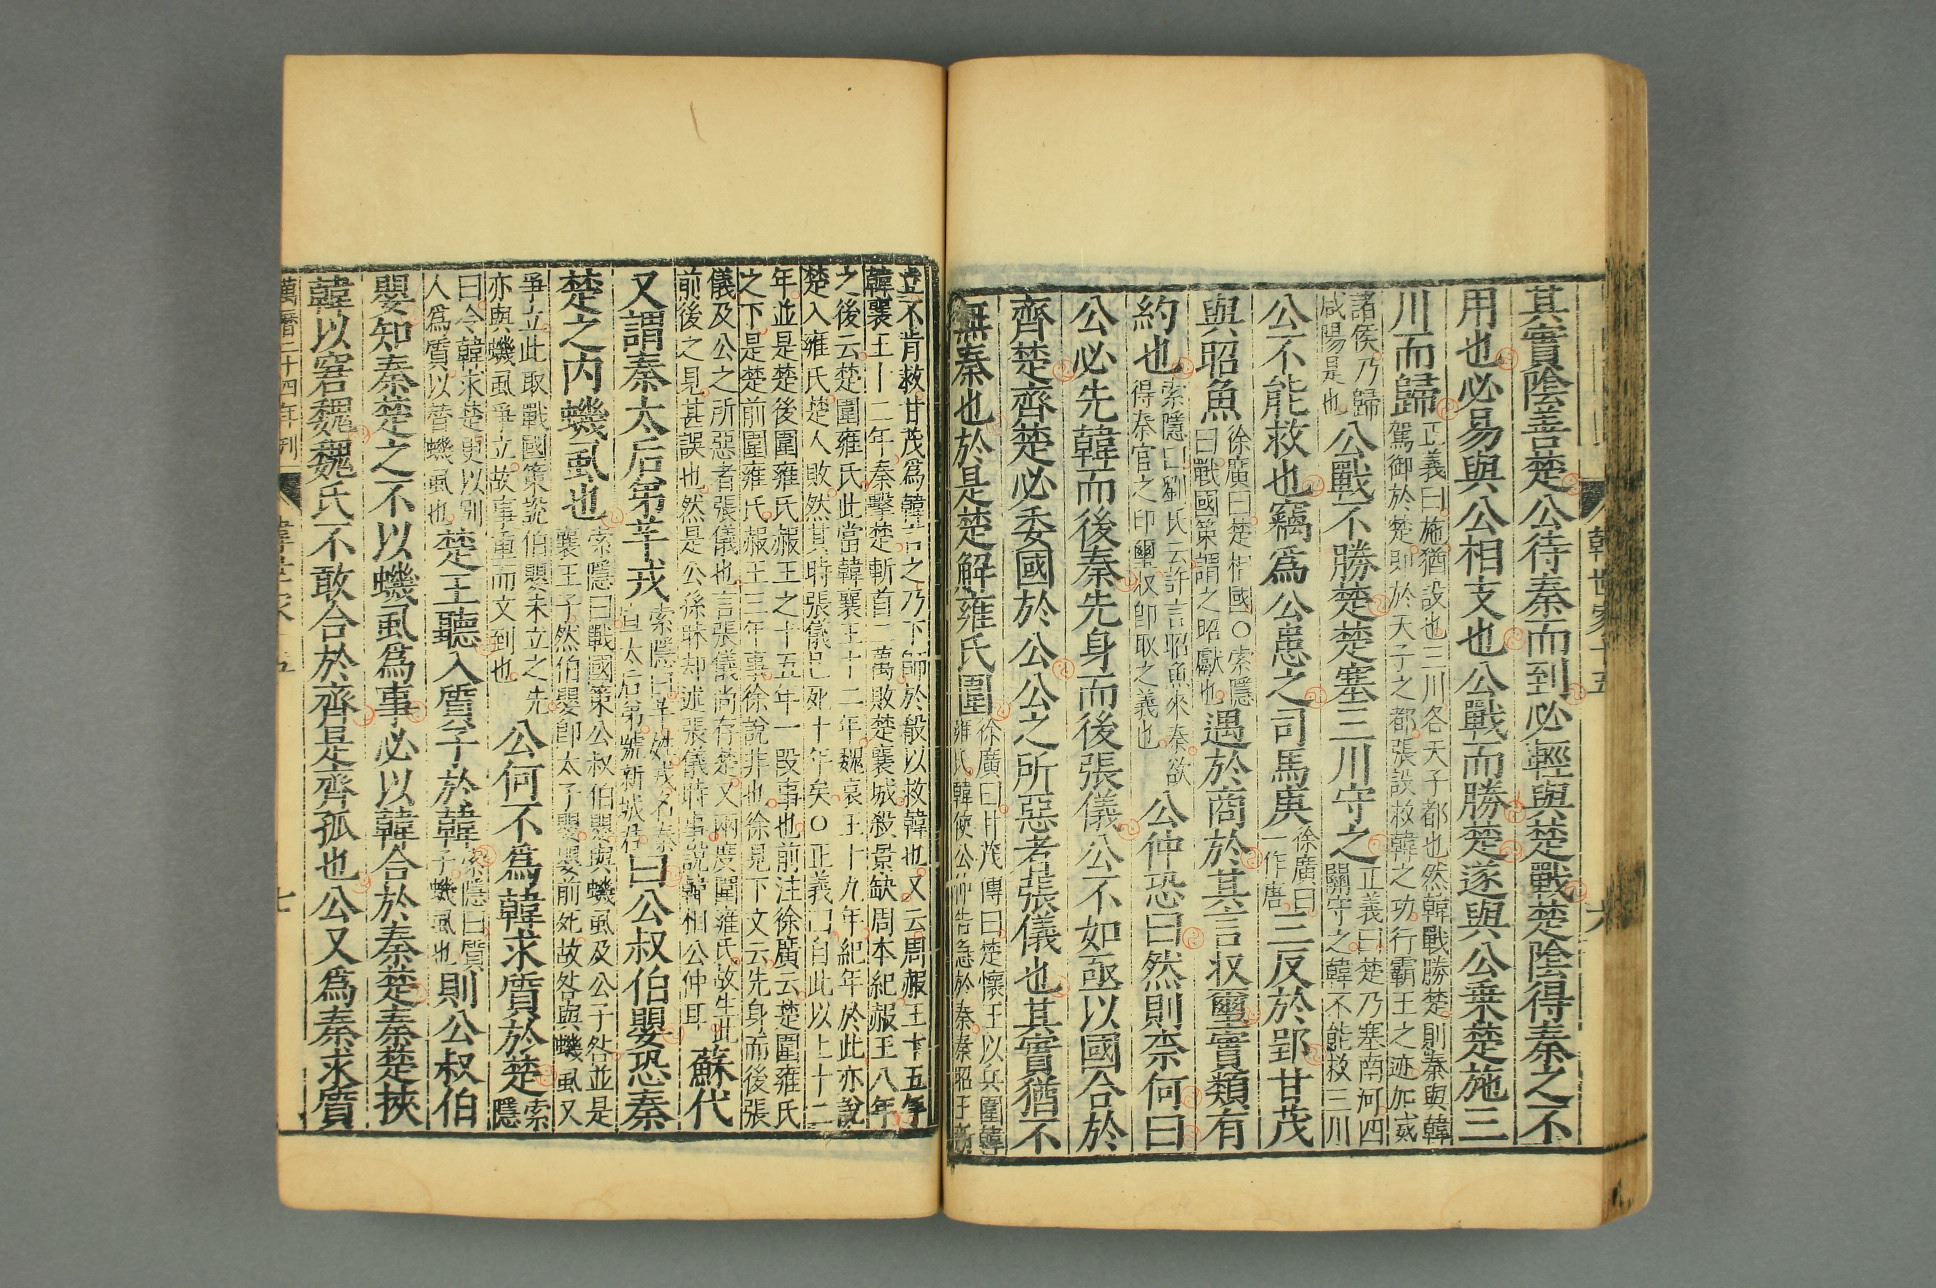 韓世家十五
六
其實陰善楚公待秦而到必輕與楚戰楚陰得秦之不
用也必易與公相支也公戰而勝楚遂與公乗楚施三
川而歸正義曰施猶設也三川各天子都也然韓戰勝楚則秦與韓
駕御於楚即於天子之都張設救韓之功行霸王之迹加威
諸侯乃歸
咸陽是也公戰不勝楚楚塞三川守之正義曰楚乃塞南河四
關守之韓不能救三川
公不能救也竊爲公患之司馬庚徐廣曰
一作唐三反於郢甘茂
與昭魚徐廣曰楚相國○索隱
曰戰國策謂之昭獻也遇於商於其言收璽實類有
約也索隱曰劉氏云詐言昭魚來秦欲
得秦官之印璽收即取之義也公仲恐曰然則柰何曰
公必先韓而後秦先身而後張儀公不如亟以國合於
齊楚齊楚必委國於公公之所惡者張儀也其實猶不
無秦也於是楚解雍氏圍徐廣曰甘茂傳曰楚懷王以兵圍韓
雍氏韓使公仲告急於秦秦昭王新
立不肯救甘茂爲韓言之乃下師於殽以救韓也又云周赧王十五年
韓襄王十二年秦擊楚斬首二萬敗楚襄城殺景缺周本紀赧王八年
之後云楚圍雍氏此當韓襄王十二年魏哀王十九年紀年於此亦說
楚入雍氏楚人敗然其時張儀已死十年矣○正義曰自此以上十二
年並是楚後圍雍氏赧王之十五年一段事也前注徐廣云楚圍雍氏
之下是楚前圍雍氏赧王三年事徐說非也徐見下文云先身而後張
儀及公之所惡者張儀也言張儀尚存楚又兩度圍雍氏故生此
前後之見甚誤也然是公孫昧却述張儀時事說韓相公仲耳蘇代
又謂秦太后弟羋戎索隱曰羋姓戎名秦
宣太后弟號新城君曰公叔伯嬰恐秦
楚之内蟣虱也索隱曰戰國策公叔伯嬰與蟣虱及公子咎並是
襄王子然伯嬰即太子嬰嬰前死故咎與蟣虱又
爭立此取戰國策說伯嬰未立之先
亦與蟣虱爭立故事重而文到也公何不爲韓求質於楚索隱
曰令韓求楚更以別
人爲質以替蟣虱也楚王聽入質子於韓索隱曰質
子蟣虱也則公叔伯
嬰知秦楚之不以蟣虱爲事必以韓合於秦楚秦楚挾
韓以窘魏魏氏不敢合於齊是齊孤也公又爲秦求質
萬曆二十四年刊
七